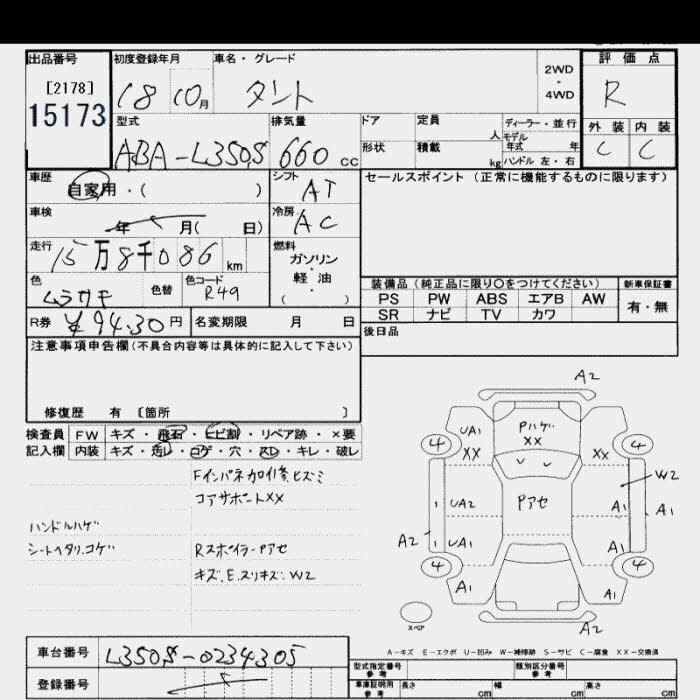 出品番号 初度登録年月 車名・グレード 2WD・4WD 評価点
[2178]
15173
18 10月 タント R
型式 排気量 ドア 定員 人 ディーラー・並行
モデル年式 年 外装 内装
ABA-L350S 660cc 形状 積載 kg ハンドル 左・右 C C
車歴 自家用・( )
シフト AT
セールスポイント (正常に機能するものに限ります)
車検 年 月( 日)
冷房 AC
走行 15万8千086km
燃料 ガソリン・軽油 ( )
色 ムラサキ 色替 色コード R49
装備品(純正品に限り○をつけてください) 新車保証書
PS PW ABS エアB AW 有・無
SR ナビ TV カワ
R券 ¥9430円 名変期限 月 日
後日品
注意事項申告欄(不具合内容等は具体的に記入して下さい)
修復歴 有 [箇所 ]
検査員 FW キズ・飛石・ヒビ割・リペア跡・×要
記入欄 内装 キズ・汚レ・コゲ・穴・スレ・キレ・破レ
Fインパネ加修.ヒズミ
コアサポートXX
ハンドルハゲ
シートヘタリ.コゲ
RスポイラーPアセ
キズ.E.スリキズ.W2
A2
UA1 Pハゲ XX
XX XX
4 4
W2
UA2 Pアセ A1 A1
A2 UA1 A1
4 4
A1 A1
スペア A2
A-キズ E-エクボ U-凹み W-補修跡 S-サビ C-腐食 XX-交換済
車台番号 L350S-0234305
型式指定番号 参考 類別区分番号 参考
登録番号
車庫証明用 参考 長さ cm 幅 cm 高さ cm